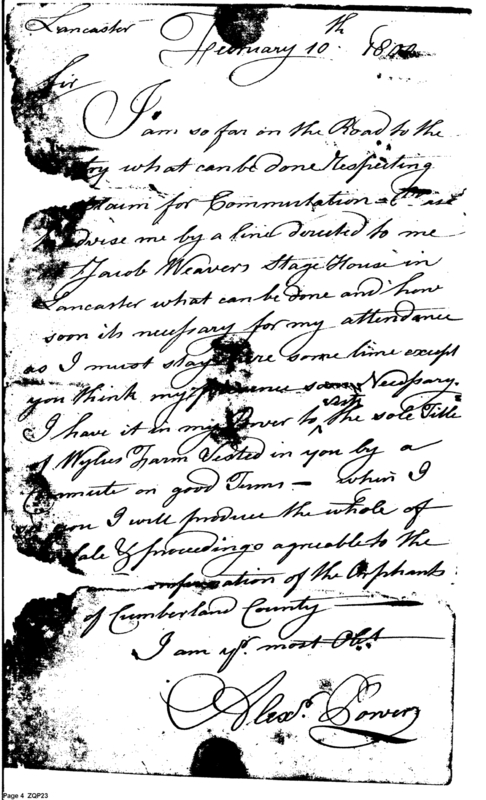 Lancaster
February 10th 1802
Sir
I am so far on the Road to the
try what can be done respecting
Claim for Commutation
advise me by a line directed to me
Jacob Weavers Stage House in
Lancaster what can be done and how
soon its necessary for my attendance
as I must stay here some time except
you think my presence soon Necessary.
I have it in my Power to the sole Title
of Wylies Farm Vested in you by a
on good Terms – when I
you I will produce the whole of
Sale & proceedings agreable to the
of the Orphants
of Cumberland County
I am yr. most Obt.
Alexr. Power
Page 4 ZQP23